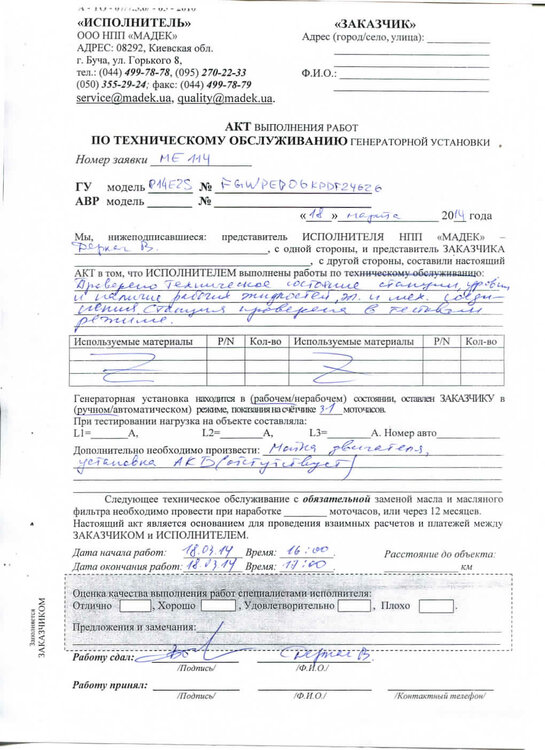 «ИСПОЛНИТЕЛЬ»
ООО НПП «МАДЕК»
АДРЕС: 08292, Киевская обл.
г. Буча, ул. Горького 8,
тел.: (044) 499-78-78, (095) 270-22-33
(050) 355-29-24; факс: (044) 499-78-79
service@madek.ua, quality@madek.ua.
«ЗАКАЗЧИК»
Адрес (город/село, улица):
Ф.И.О.:
АКТ ВЫПОЛНЕНИЯ РАБОТ
ПО ТЕХНИЧЕСКОМУ ОБСЛУЖИВАНИЮ ГЕНЕРАТОРНОЙ УСТАНОВКИ
Номер заявки МЕ 114
ГУ модель P14E2S №
АВР модель №
«18» марта 2014 года
Мы, нижеподписавшиеся: представитель ИСПОЛНИТЕЛЯ НПП «МАДЕК» –
В. , с одной стороны, и представитель ЗАКАЗЧИКА
, с другой стороны, составили настоящий
АКТ в том, что ИСПОЛНИТЕЛЕМ выполнены работы по техническому обслуживанию:
Проверено техническое состояние станции, уровни
и наличие рабочих жидкостей, эл. и мех. соеди-
нения. Станция проверена в тестовом
режиме.
Используемые материалы P/N Кол-во Используемые материалы P/N Кол-во
Генераторная установка находится в (рабочем/нерабочем) состоянии, оставлен ЗАКАЗЧИКУ в
(ручном/автоматическом) режиме, показания на счётчике 31 моточасов.
При тестировании нагрузка на объекте составляла:
L1= А, L2= А, L3= А. Номер авто
Дополнительно необходимо произвести: Мойка двигателя,
установка АКБ (отсутствует)
Следующее техническое обслуживание с обязательной заменой масла и масляного
фильтра необходимо провести при наработке моточасов, или через 12 месяцев.
Настоящий акт является основанием для проведения взаимных расчетов и платежей между
ЗАКАЗЧИКОМ и ИСПОЛНИТЕЛЕМ.
Дата начала работ: 18.03.14 Время: 16:00 Расстояние до объекта:
Дата окончания работ: 18.03.14 Время: 17:00 км
Заполняется
ЗАКАЗЧИКОМ
Оценка качества выполнения работ специалистами исполнителя:
Отлично , Хорошо , Удовлетворительно , Плохо .
Предложения и замечания:
Работу сдал:
/Подпись/ /Ф.И.О./
Работу принял:
/Подпись/ /Ф.И.О./ /Контактный телефон/